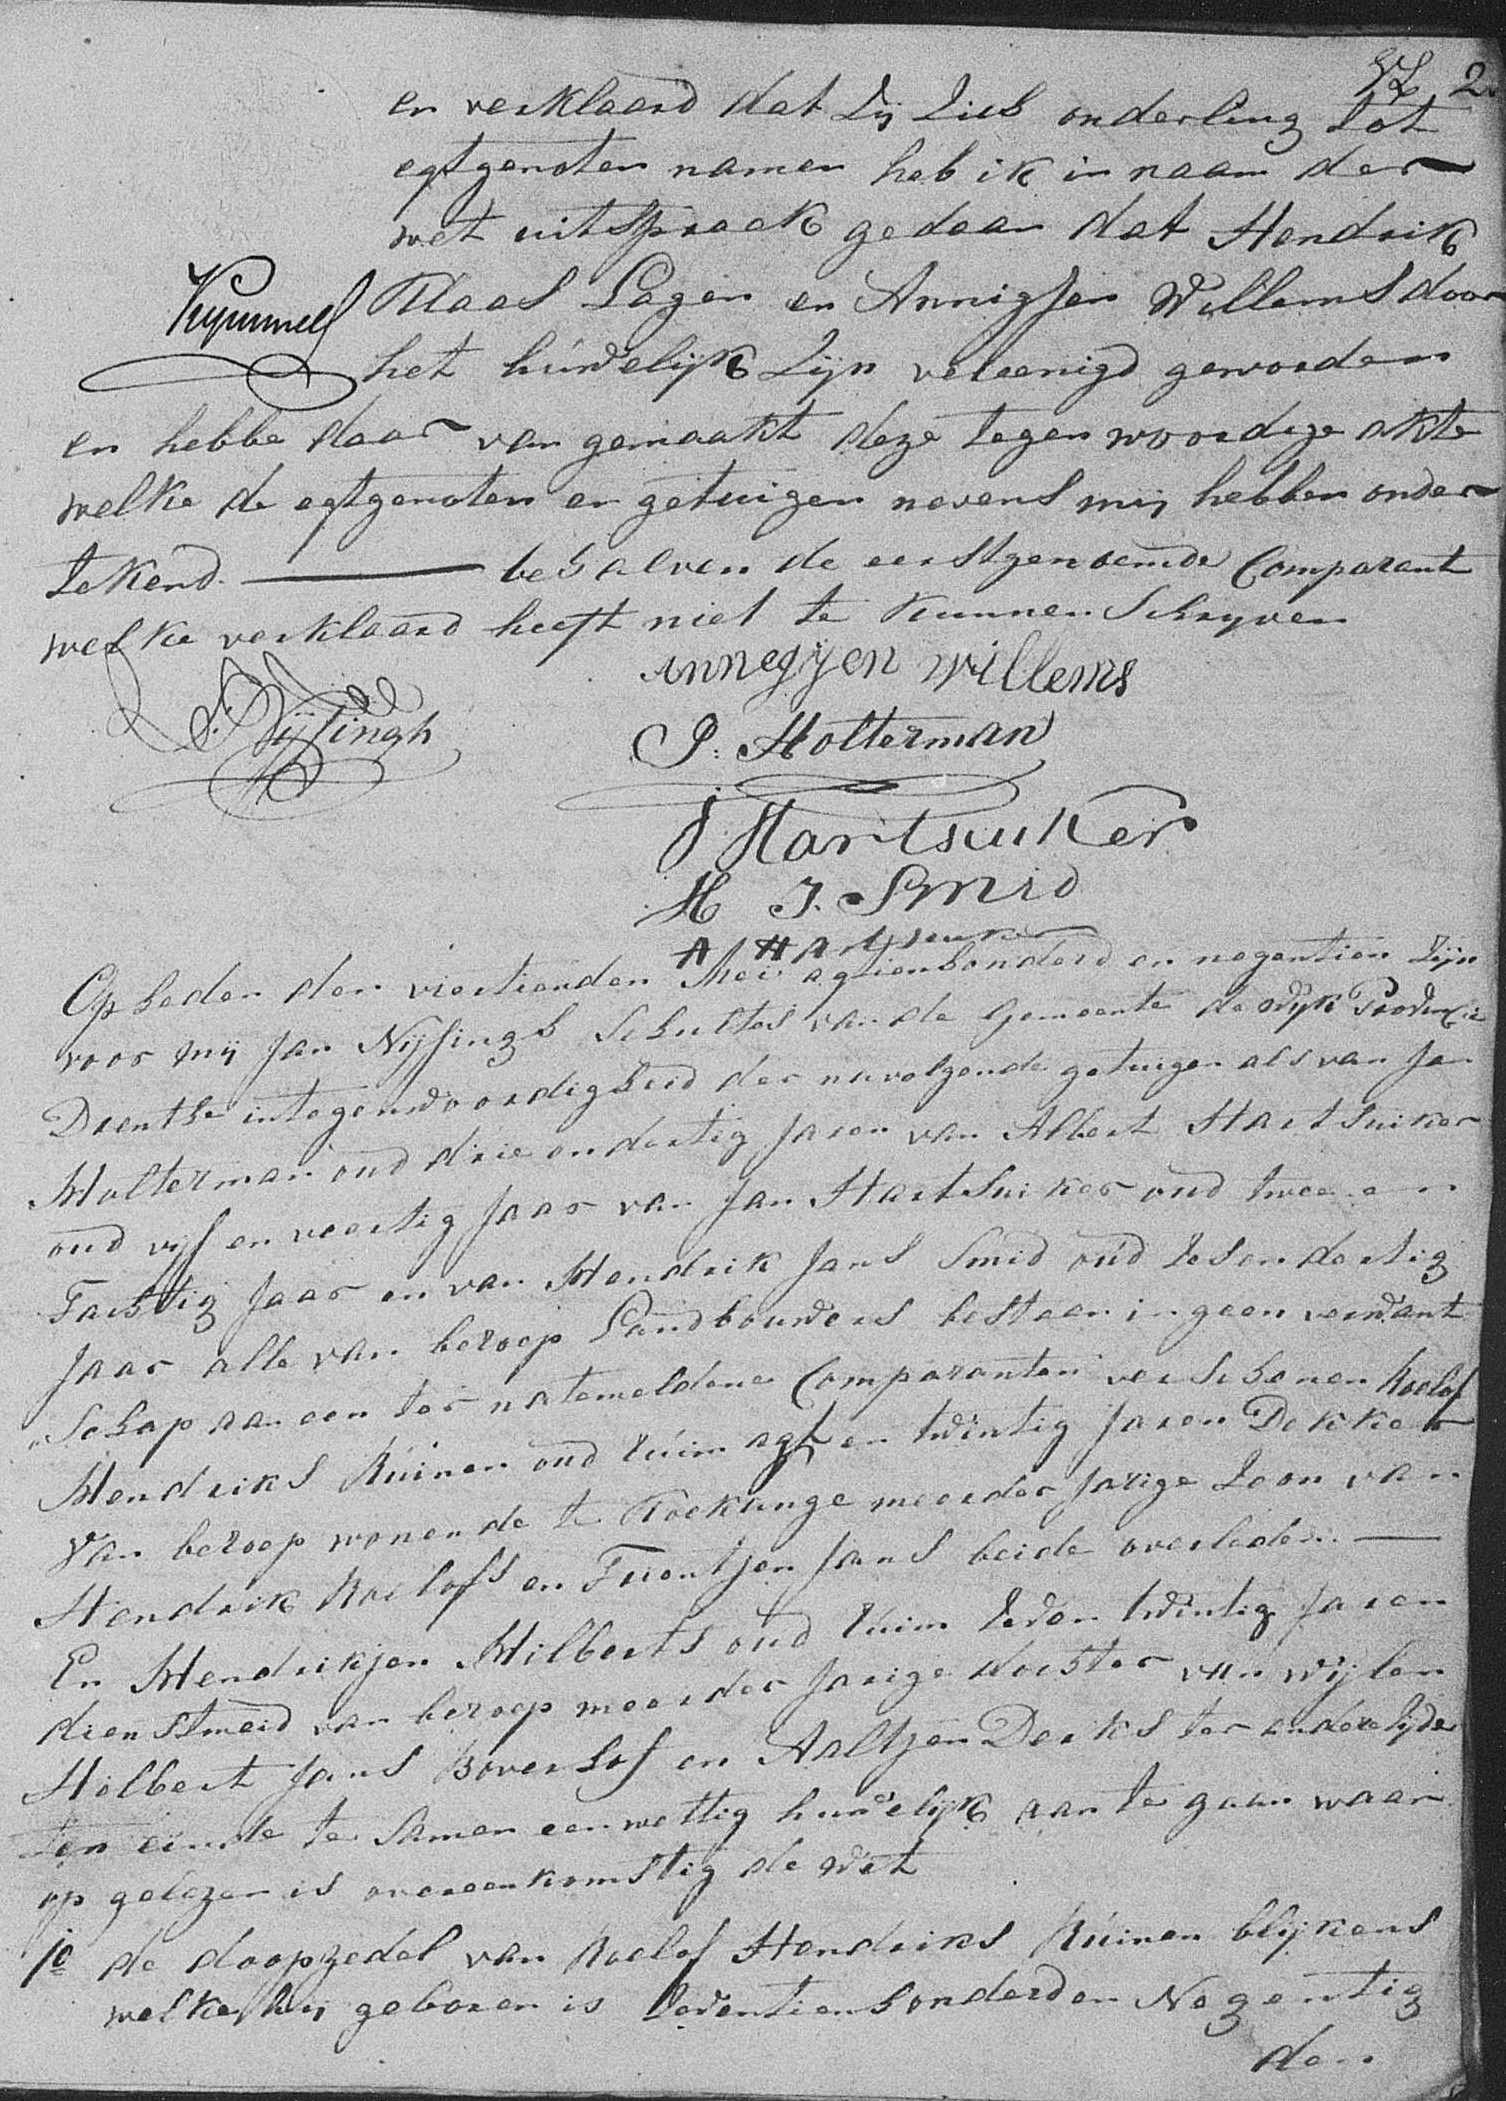 2.
en verklaard dat Zij Zich onderling Tot
egtgenoten namen heb ik in naam der
wet uitspraak gedaan dat Hendrik
Klaas Lagen en Annigjen Willems door
Kymmell
het huwelijk Zijn vereenigd geworden
en hebbe daar van gemaakt deze tegen woordige akte
welke de egtgenoten en getuigen nevens mij hebben onder
tekend. behalven de eerstgenoemde Comparant
welke verklaard heeft niet te Kunnen Schryven
annegyen willems
J: Nijsingh
J: Holterman
J Hartsuiker
H J. Smid
A Hartsuiker
Op heden den viertienden Mei agtienhonderd en negentien Zijn
voor mij Jan Nijsingh Schultes van de Gemeente de Wijk Provincie
Drenthe in tegenwoordigheid der navolgende getuigen als van Jan
Holterman oud drie en dertig Jaren van Albert Hartsuiker
oud vijf en veertig Jaar van Jan Hartsuiker oud twee en
Tachtig Jaar en van Hendrik Jans Smid oud Zes en dertig
Jaar alle van beroep Landbouwers bestaan in geen verwant
Schap aan een ter natemeldene Comparanten verschenen Roelof
Hendriks Ruinen oud Ruim agt en twintig Jaren Dekker
Van beroep wonende te Kockange meerder Jarige Zoon van
Hendrik Roelofs en Trientjen Jans beide overleden.
En Hendrikjen Hilberts oud Ruim Zeven twintig Jaren
dienstmeid van beroep meerder Jarige dochter van wijlen
Hilbert Jans Boverhof en Aaltjen Derks ter andere Zijde
ten einde te Samen een wettig huwelijk aan te gaan waar
op gelezen is overeenkomstig de Wet
1e de doopzedel van Roelof Hendriks Ruinen blijkens
welke hij geboren is Zeventienhonderd en Negentig
den